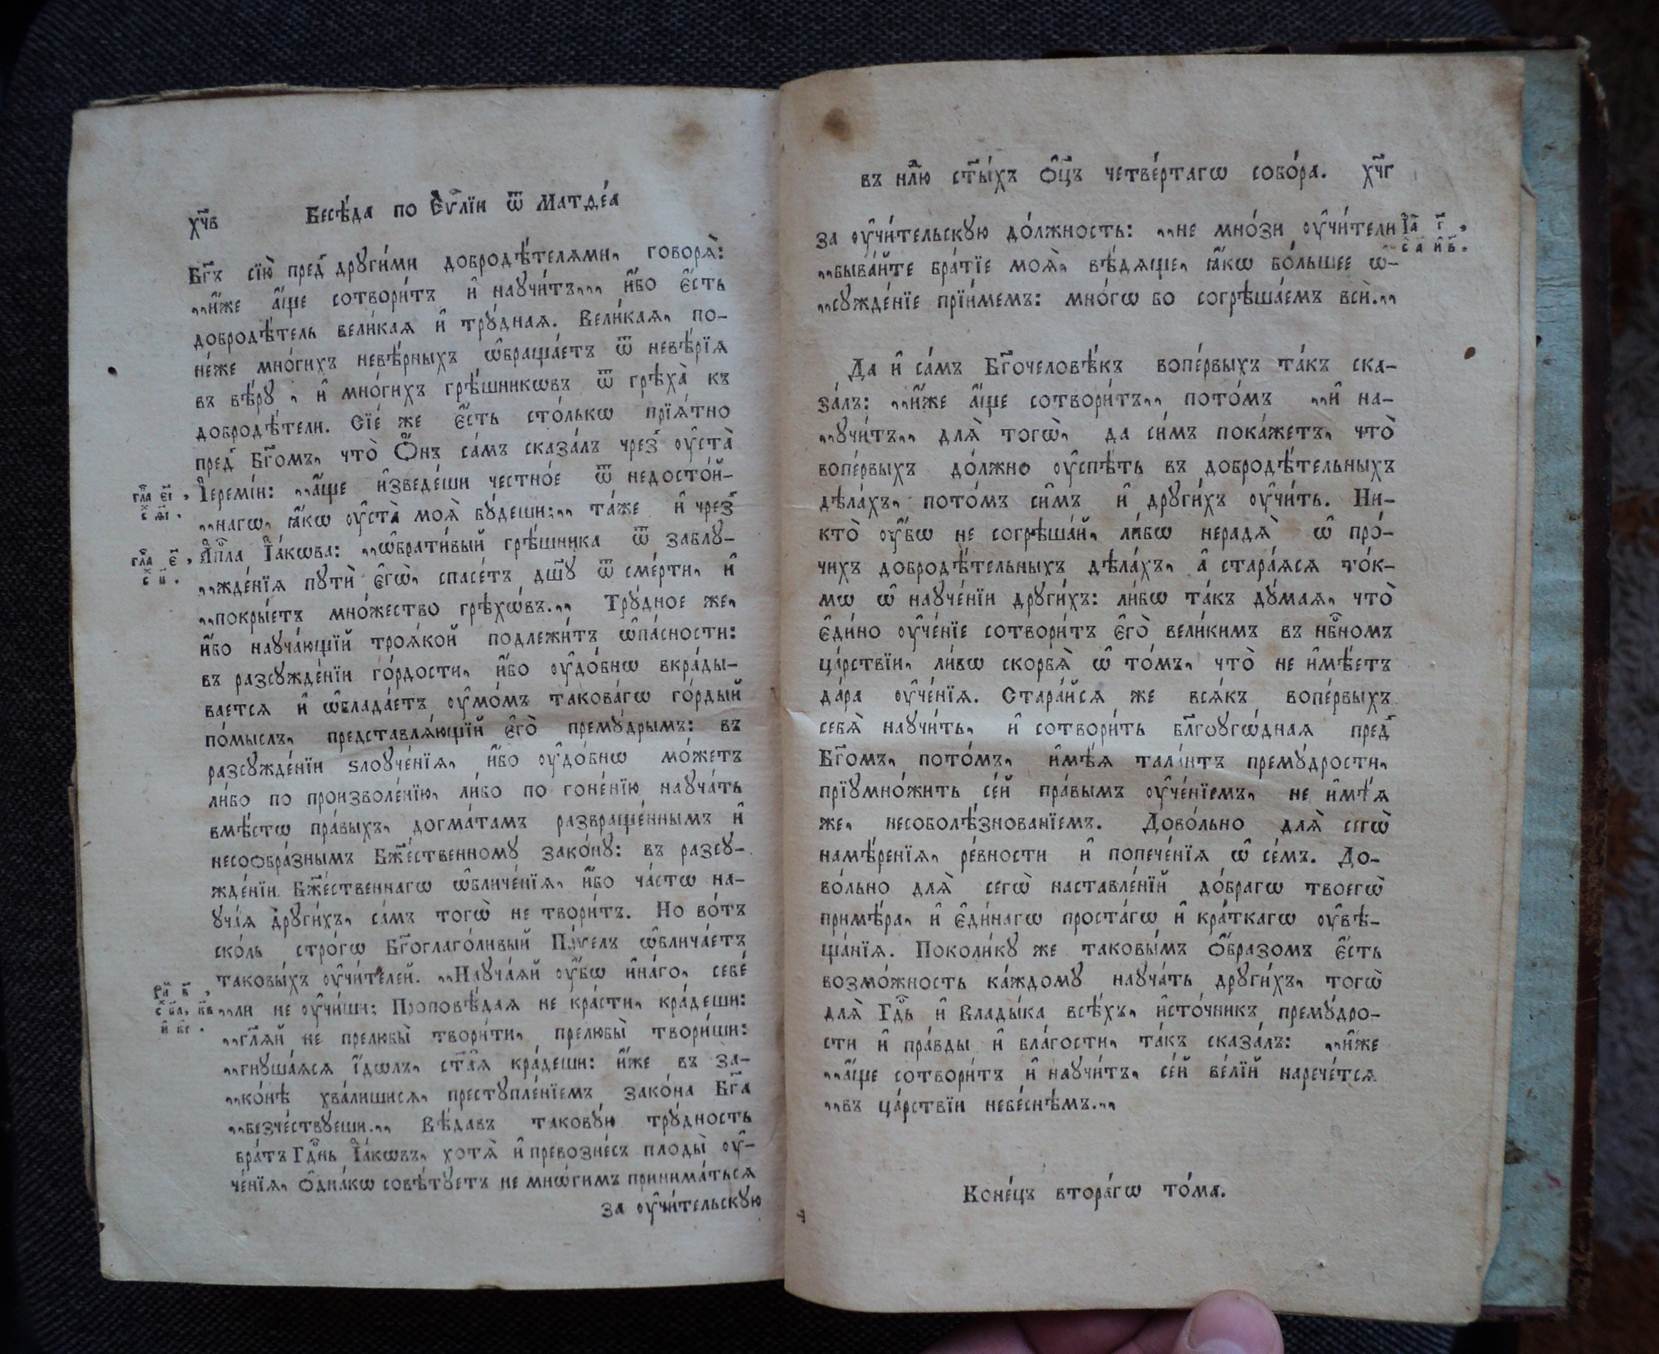 х҃чв Бесѣ́да по Є҆ѵⷢ҇лїи ѿ Матѳе́а
Бг҃ъ сїю̀ преⷣ други́ми добродѣ́телями, говоря̀:
„и҆́же а҆́ще сотвори́тъ и҆ научи́тъ„, и҆́бо є҆́сть
добродѣ́тель вели́кая и҆ трꙋ́дная. Вели́кая, по-
не́же мно́гихъ невѣ́рныхъ ѡ҆браща́етъ ѿ невѣ́рїя
въ вѣ́рꙋ, и҆ мно́гихъ грѣ́шникѡвъ ѿ грѣха̀ къ
добродѣ́тели. Сїе́ же є҆́сть сто́лькѡ прїя́тно
преⷣ Бг҃омъ, что̀ Ѻ҆́нъ са́мъ сказа́лъ чреⷥ ᲂу҆ста̀
І҆еремі́и: „а҆́ще и҆зведе́ши честно́е ѿ недосто́й-
„нагѡ, ꙗ҆́кѡ ᲂу҆ста̀ моя̀ бꙋ́деши:„ та́же и҆ чреⷥ
А҆пⷭ҇ла І҆а́кѡва: „ѡ҆брати́вый грѣ́шника ѿ заблꙋ-
„жде́нїя пꙋтѝ є҆гѡ̀, спасе́тъ дш҃ꙋ ѿ сме́рти, и҆
„покры́етъ мно́жество грѣхѡ́въ.„ Трꙋ́дное же,
и҆́бо наꙋча́ющїй троя́кой подлежи́тъ ѡ҆па́сности:
въ разсꙋжде́нїи го́рдости, и҆́бо ᲂу҆до́бнѡ вкра́ды-
вается и҆ ѡ҆блада́етъ ᲂу҆мо́мъ такова́гѡ го́рдый
по́мыслъ, представля́ющїй є҆го̀ премꙋ́дрымъ: въ
разсꙋжде́нїи ѕлоꙋче́нїя, и҆́бо ᲂу҆до́бнѡ мо́жетъ
ли́бо по произволе́нїю, ли́бо по гоне́нїю наꙋча́ть
вмѣ́стѡ пра́выхъ, догма́тамъ развраще́ннымъ и҆
несообра́знымъ Бж҃е́ственномꙋ зако́нꙋ: въ разсꙋ-
жде́нїи Бж҃е́ственнагѡ ѡ҆бличе́нїя, и҆́бо ча́стѡ на-
ꙋча́я дрꙋги́хъ, са́мъ тогѡ̀ не твори́тъ. Но во́тъ
ско́ль стро́гѡ Бг҃оглаго́ливый Па́ѵелъ ѡ҆блича́етъ
таковы́хъ ᲂу҆чи́телей. „Наꙋча́яй ᲂу҆́бѡ и҆на́го, себе́
„ли не ᲂу҆чи́ши; Проповѣ́дая не кра́сти, кра́деши:
„гл҃яй не прелюбы̀ твори́ти, прелюбы̀ твори́ши:
„гнꙋша́яся і҆́дѡлъ, ст҃а̑я кра́деши: и҆́же въ за-
„ко́нѣ хва́лишися, престꙋпле́нїемъ зако́на Бг҃а
„безче́ствꙋеши.„ Вѣ́давъ таковꙋ́ю трꙋ́дность
бра́тъ Гдⷭ҇нь І҆а́кѡвъ, хотя̀ и҆ превозне́съ плоды̀ ᲂу҆-
че́нїя, ѻ҆дна́кѡ совѣ́тꙋетъ не мнѡ́гимъ принима́ться
за ᲂу҆чи́тельскꙋю
въ нⷣлю ст҃ы́хъ ѻ҆ц҃ъ четве́ртагѡ собо́ра. х҃чг
за ᲂу҆чи́тельскꙋю до́лжность: „не мно́зи ᲂу҆чи́тели
„быва́йте бра́тїе моя̀, вѣ́дяще, ꙗ҆́кѡ бо́льшее ѡ҆-
„сꙋжде́нїе прїи́мемъ: мно́гѡ бо согрѣша́емъ всѝ.„
Да и҆ са́мъ Бг҃очеловѣ́къ вопе́рвыхъ та́къ ска-
за́лъ: „и҆́же а҆́ще сотвори́тъ„, пото́мъ „и҆ на-
„ꙋчи́тъ„, для̀ тогѡ̀, да си́мъ пока́жетъ, что̀
вопе́рвыхъ до́лжно ᲂу҆спѣ́ть въ добродѣ́тельныхъ
дѣ́лахъ, пото́мъ си́мъ и҆ дрꙋги́хъ ᲂу҆чи́ть. Ни-
кто̀ ᲂу҆́бѡ не согрѣша́й, ли́бѡ нерадя̀ ѡ҆ про́-
чихъ добродѣ́тельныхъ дѣла́хъ, а҆ стара́яся то́к-
мѡ ѡ҆ наꙋче́нїи дрꙋги́хъ: ли́бѡ та́къ дꙋ́мая, что̀
є҆ди́но ᲂу҆че́нїе сотвори́тъ є҆го̀ вели́кимъ въ нбⷭ҇номъ
ца́рствїи, ли́бѡ скорбя̀ ѡ҆ то́мъ, что̀ не и҆мѣ́етъ
да́ра ᲂу҆че́нїя. Стара́йся же вся́къ вопе́рвыхъ
себя̀ наꙋчи́ть, и҆ сотвори́ть бл҃гоꙋгѡ́дная преⷣ
Бг҃омъ, пото́мъ, и҆мѣ́я тала́нтъ премꙋ́дрости,
прїꙋмно́жить се́й пра́вымъ ᲂу҆че́нїемъ, не и҆мѣ́я
же, несоболѣ́знованїемъ. Дово́льно для̀ сегѡ̀
намѣ́ренїя, ре́вности и҆ попече́нїя ѡ҆ се́мъ. До-
во́льно для̀ сегѡ̀ наставле́нїй до́брагѡ твоегѡ̀
примѣ́ра, и҆ є҆ди́нагѡ проста́гѡ и҆ кра́ткагѡ ᲂу҆вѣ-
ща́нїя. Поколи́кꙋ же таковы́мъ ѻ҆́бразомъ є҆́сть
возмо́жность ка́ждомꙋ наꙋча́ть дрꙋги́хъ, тогѡ̀
для̀ Гдⷭ҇ь и҆ Влады́ка всѣ́хъ, и҆сто́чникъ премꙋ́дро-
сти и҆ пра́вды и҆ бла́гости, та́къ сказа́лъ: „и҆́же
„а҆́ще сотвори́тъ и҆ наꙋчи́тъ, се́й ве́лїй нарече́тся
„въ ца́рствїи небе́снѣмъ.„
Коне́цъ втора́гѡ то́ма.